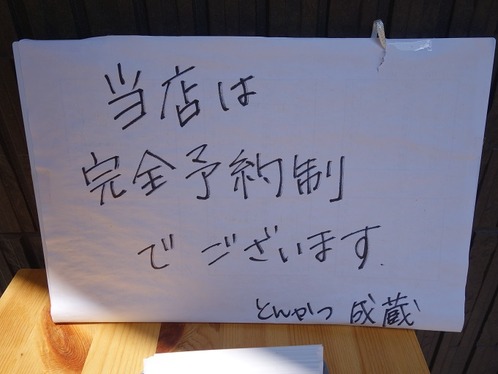 当店は
完全予約制
でございます.
とんかつ 成蔵